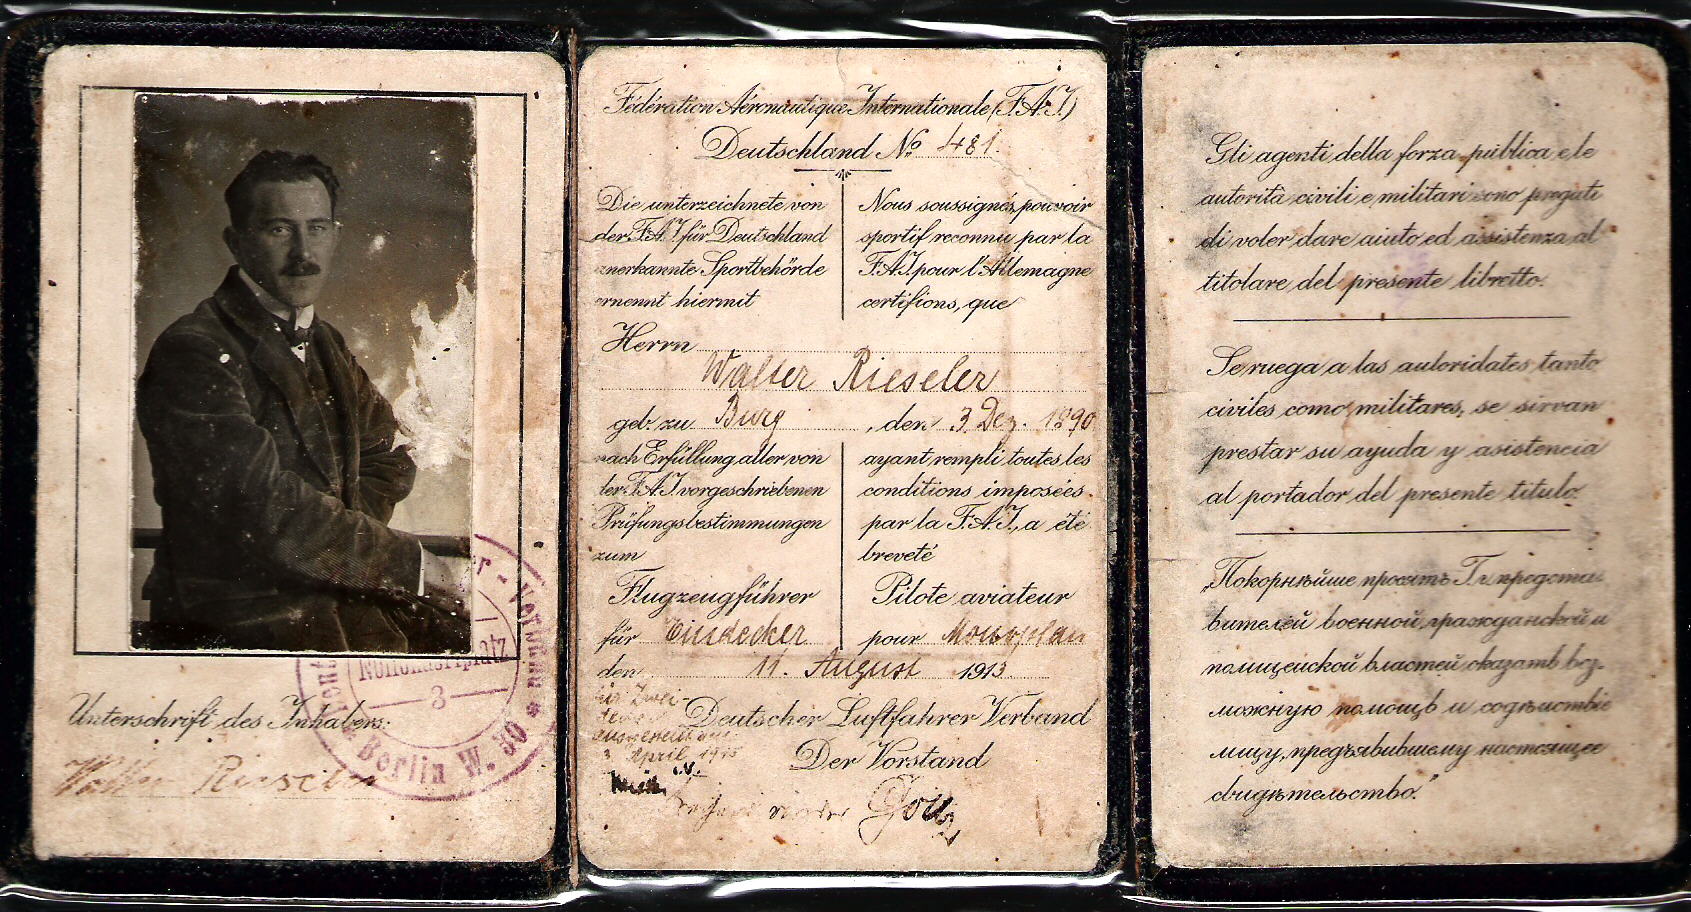 Unterschrift des Inhabers:
Walter Rieseler
Nollendorfplatz
3
Berlin W. 30
Fédération Aéronautique Internationale (F.A.I)
Deutschland No 481.
Die unterzeichnete von
der F.A.I für Deutschland
anerkannte Sportbehörde
ernennt hiermit
Nous soussignés, pouvoir
sportif reconnu par la
F.A.I pour l'Allemagne
certifions, que
Herrn
Walter Rieseler
geb. zu Burg, den 3. Dez. 1890
nach Erfüllung aller von
der F.A.I vorgeschriebenen
Prüfungsbestimmungen
zum
Flugzeugführer
für Eindecker
ayant rempli toutes les
conditions imposées
par la F.A.I., a été
breveté
Pilote aviateur
pour Monoplan
den 11. August 1913.
für Zwei-
3 April 1915
i.V.
Deutscher Luftfahrer Verband
Der Vorstand
Gli agenti della forza pública e le
autorità civili e militari sono pregati
di voler dare aiuto ed assistenza al
titolare del presente libretto.
Se ruega a las autoridates tanto
civiles como militares, se sirvan
prestar su ayuda y asistencia
al portador del presente titulo.
„Покорнѣйше просятъ Гг. предста-
вителей военной, гражданской и
полицейской властей оказать воз-
можную помощь и содѣйствіе
лицу, предъявившему настоящее
свидѣтельство."